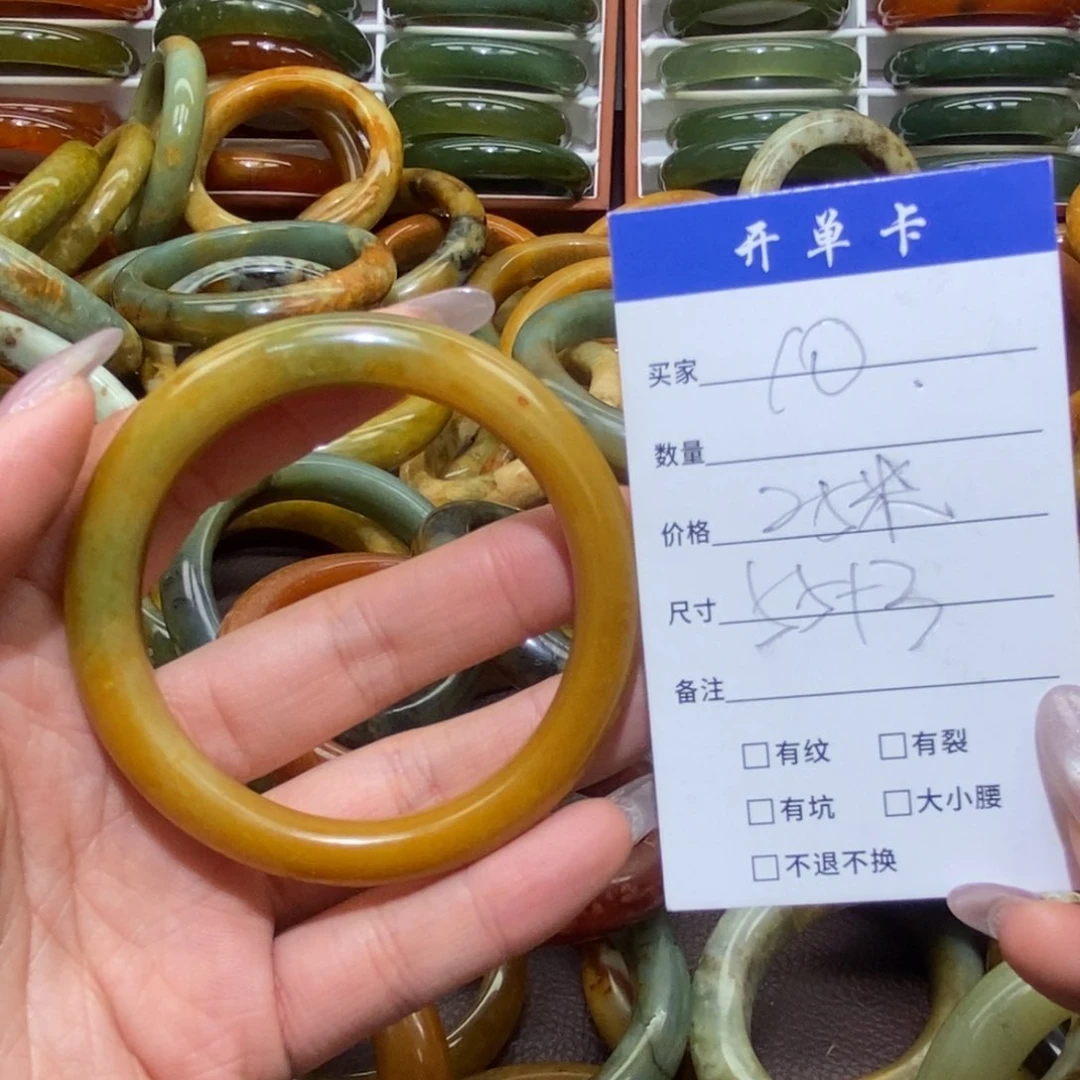 开单卡
买家 10.
数量
价格 25米
尺寸 55+3
备注
□有纹 □有裂
□有坑 □大小腰
□不退不换